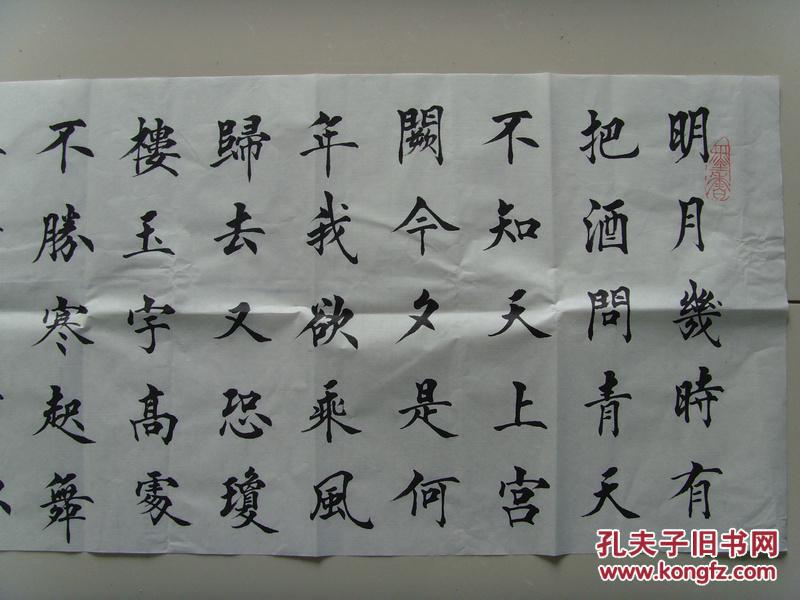 明月幾時有
把酒問青天
不知天上宮
闕今夕是何
年我欲乘風
歸去又恐瓊
樓玉宇高處
不勝寒起舞
墨香
孔夫子旧书网
www.kongfz.com